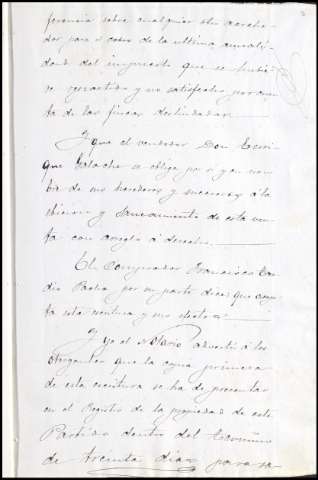 ferencia sobre cualquier otro acreedor
dor para el cobro de la ultima anuali-
dad del impuesto que se hubie-
se repartido y no satisfecho por ra-
ta de las fincas deslindadas.
Y que el vendedor Don Enri-
que se obliga por si y en nom-
bre de sus herederos y sucesores á la
evicion y saneamiento de esta ven-
ta con arreglo á derecho.
El Comprador Francisco
por su parte dice: que acep-
ta esta escritura y sus efectos.
Y yo el Notario advertí á los
otorgantes que la copia primera
de esta escritura se ha de presentar
en el Registro de la propiedad de este
Partido dentro del termino
de treinta dias para su